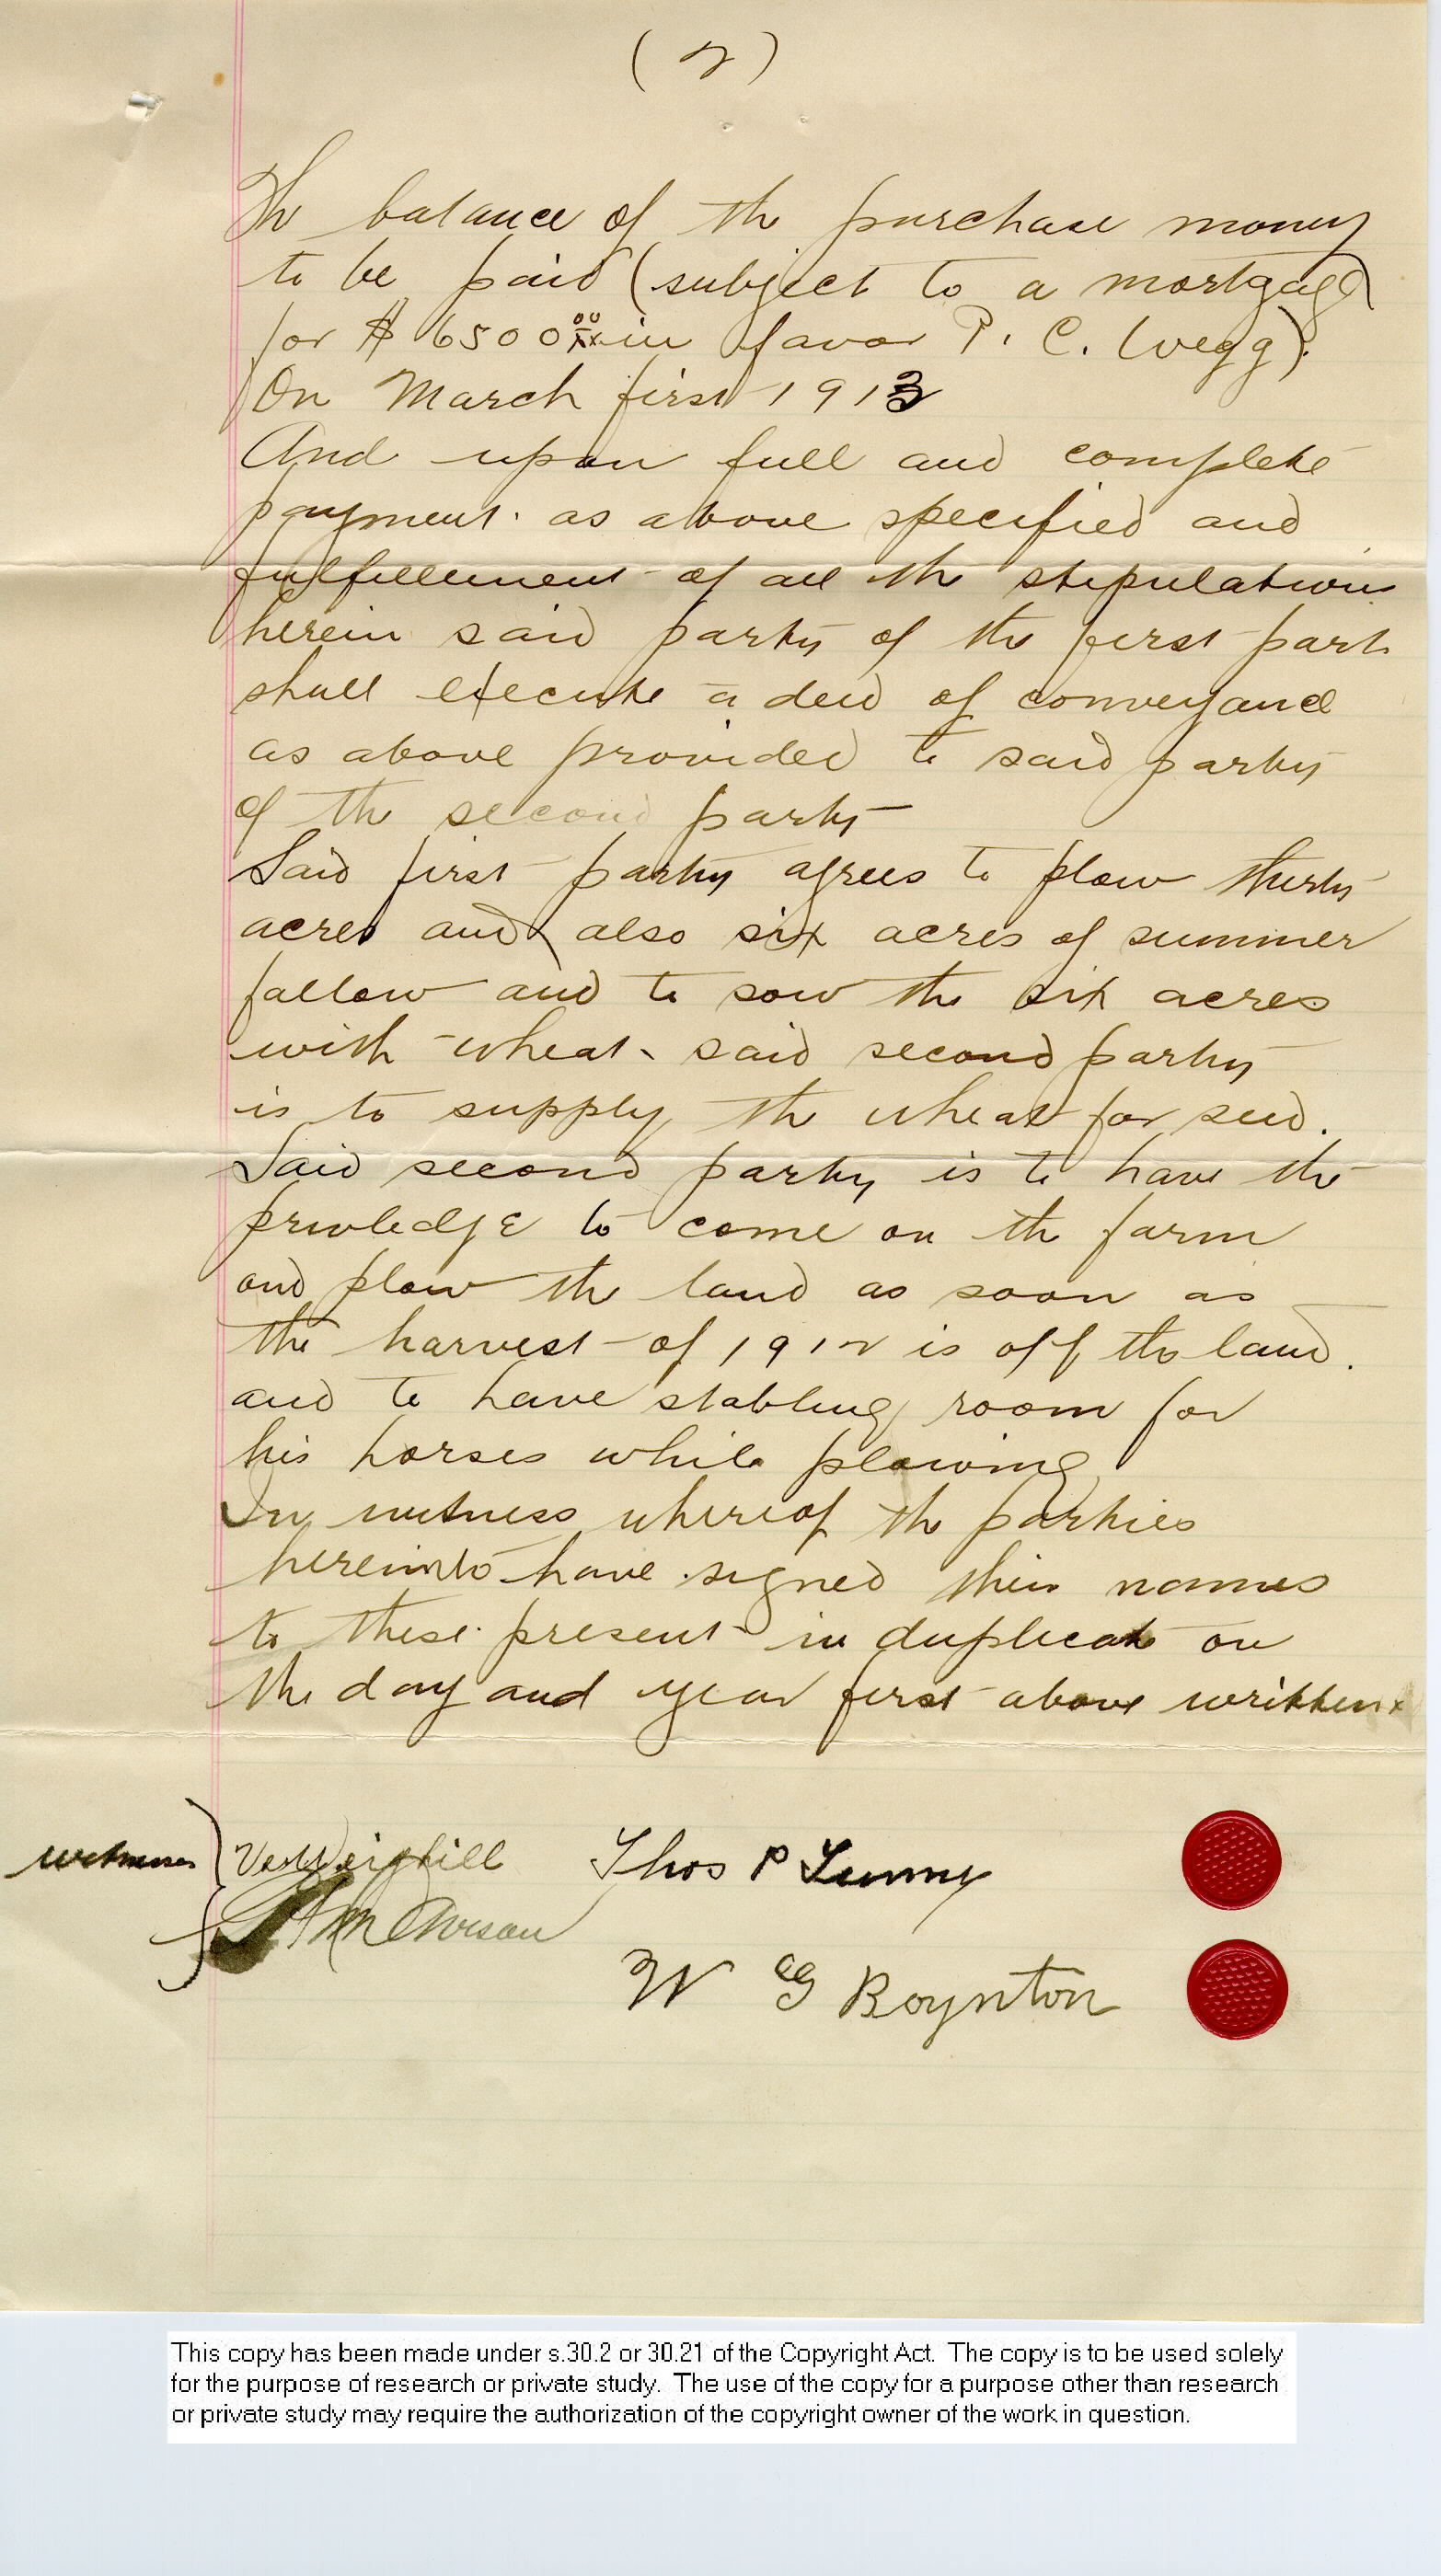 (2)
The balance of the purchase money
to be paid (subject to a mortgage
for $6500 00/xx in favor P. C. Wegg).
On March first 1913
And upon full and complete
payment as above specified and
fulfillement of all the stipulations
herein said party of the first part
shall execute a deed of conveyance
as above provided to said party
of the second party
Said first party agrees to plow thirty
acres and also six acres of summer
fallow and to sow the six acres
with wheat. said second party
is to supply the wheat for seed.
Said second party is to have the
priviledge to come on the farm
and plow the land as soon as
the harvest of 1912 is off the land.
and to have stabling room for
his horses while plowing
In witness whereof the parties
hereinto have signed their names
to these present in duplicate on
the day and year first above written
witnesses Thos P Lunny
W G Boynton
This copy has been made under s.30.2 or 30.21 of the Copyright Act. The copy is to be used solely
for the purpose of research or private study. The use of the copy for a purpose other than research
or private study may require the authorization of the copyright owner of the work in question.